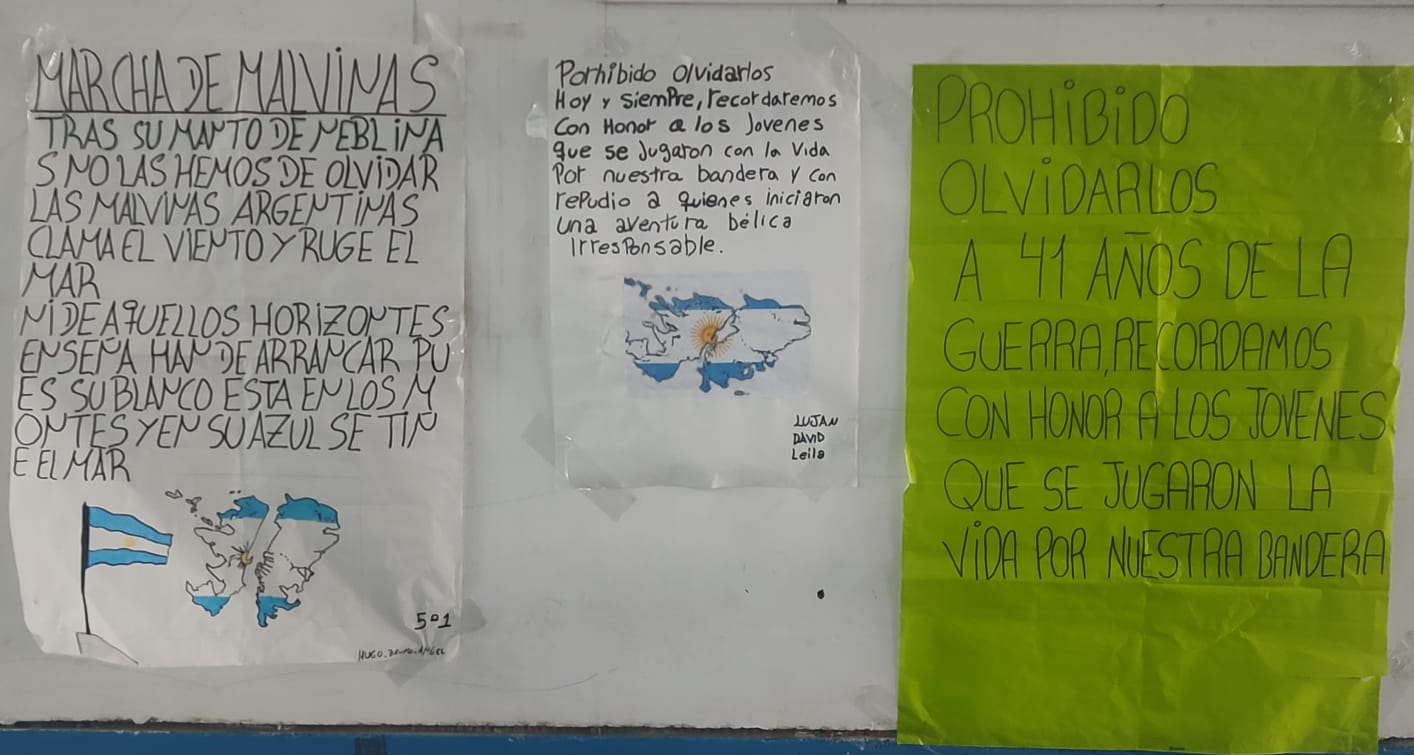 MARCHA DE MALViNAS
TRAS SU MANTO DE NEBLiNA
S NO LAS HEMOS DE OLViDAR
LAS MALViNAS ARGENTiNAS
CLAMA EL ViENTO Y RUGE EL
MAR
Ni DE AqUELLOS HORiZONTES
ENSEÑA HAN DE ARRANCAR PU
ES SU BLANCO ESTA EN LOS M
ONTES Y EN SU AZUL SE TIÑ
E EL MAR
5º1
HUGO.
ANGEL
Porhibido olvidarlos
Hoy y siemPre, recordaremos
Con Honor a los Jovenes
que se Jugaron con la Vida
Por nuestra bandera y con
rePudio a quienes iniciaron
una aventura bélica
IrresPonsable.
LUJAN
DAVID
Leila
PROHiBiDO
OLViDARLOS
A 41 AÑOS DE LA
GUERRA, RECORDAMOS
CON HONOR A LOS JOVENES
QUE SE JUGARON LA
ViDA POR NUESTRA BANDERA